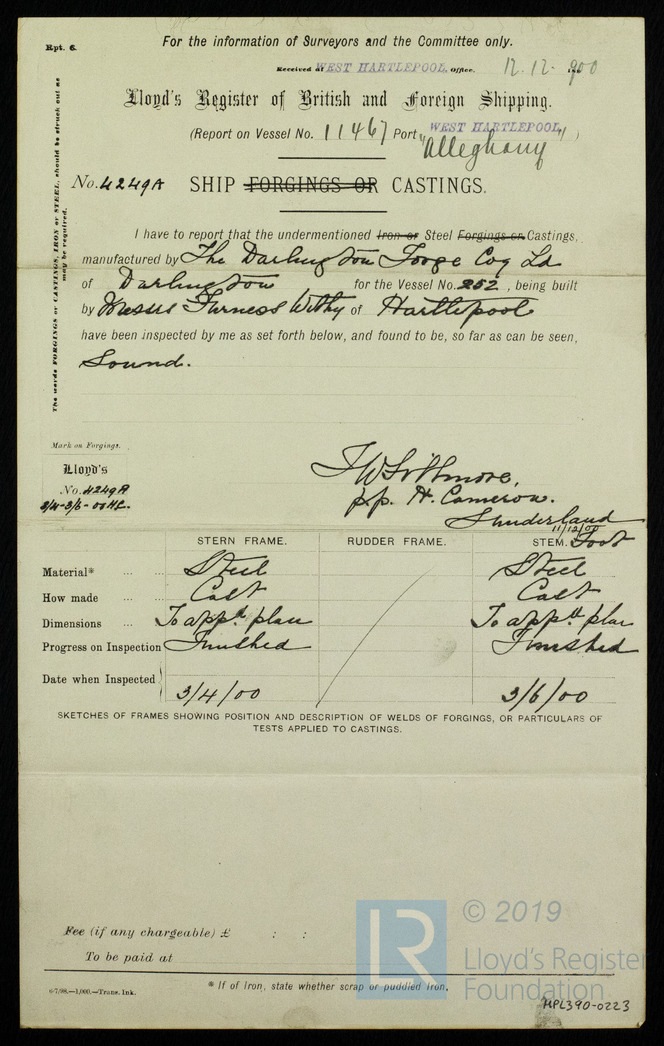 Rpt. 6.
For the information of Surveyors and the Committee only.
Received at WEST HARTLEPOOL. Office, 12.12.900
Lloyd's Register of British and Foreign Shipping.
(Report on Vessel No. 11467 Port WEST HARTLEPOOL)
"Alleghany"
No. 4249A SHIP FORGINGS OR CASTINGS.
The words FORGINGS or CASTINGS, IRON or STEEL, should be struck out as
may be required.
I have to report that the undermentioned Iron or Steel Forgings or Castings,
manufactured by The Darlington Forge Coy Ld
of Darlington for the Vessel No. 252, being built
by Messrs Furness Withy of Hartlepool
have been inspected by me as set forth below, and found to be, so far as can be seen,
Sound.
Mark on Forgings.
Lloyd's
No. 4249A
3/4-3/6-00 HC.
p.p. H. Cameron.
Sunderland
11/12/00
STERN FRAME. RUDDER FRAME. STEM. Foot
Material* ... ... Steel Steel
How made ... Cast Cast
Dimensions ... To appd. plan To appd. plan
Progress on Inspection Finished Finished
Date when Inspected 3/4/00 3/6/00
SKETCHES OF FRAMES SHOWING POSITION AND DESCRIPTION OF WELDS OF FORGINGS, OR PARTICULARS OF
TESTS APPLIED TO CASTINGS.
Fee (if any chargeable) £ : :
To be paid at
* If of Iron, state whether scrap or puddled Iron.
6/7/98.—1,000.—Trans. Ink.
LR © 2019
Lloyd's Register
Foundation
HPL390-0223